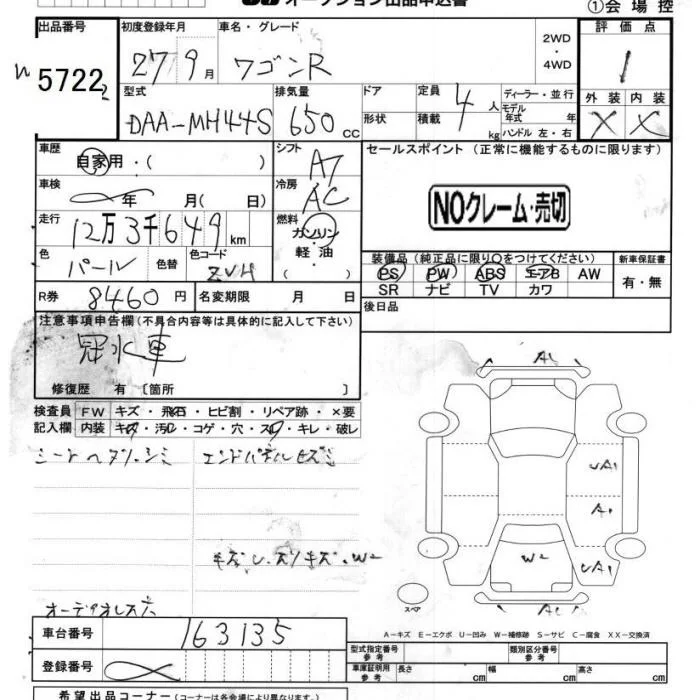 オークション出品申込書
①会場控
出品番号 初度登録年月 車名・グレード 2WD ・ 4WD 評価点
5722 27 9月 ワゴンR 1
型式 排気量 ドア 定員 ディーラー・並行 外装 内装
形状 積載 モデル 年式 年
DAA-MH44S 650 cc 4人 kg ハンドル 左・右 X X
車歴 シフト セールスポイント (正常に機能するものに限ります)
自家用・( ) AT
車検 冷房
年 月( 日) AC NOクレーム・売切
走行 燃料
12万3千649km ガソリン
色 色替 色コード 軽油 装備品(純正品に限り○をつけてください) 新車保証書
パール ZVH ・( ) PS PW ABS エアB AW 有・無
SR ナビ TV カワ
R券 8460円 名変期限 月 日 後日品
注意事項申告欄(不具合内容等は具体的に記入して下さい)
冠水車
修復歴 有〔箇所 〕
検査員 FW キズ・飛石・ヒビ割・リペア跡・×要
記入欄 内装 キズ・汚レ・コゲ・穴・スレ・キレ・破レ
シートヘタリ、シミ エンドパネルヒズミ
A1
UA1
A1
W2
UA1
A1
スペア
オーディオレス
A-キズ E-エクボ U-凹み W-補修跡 S-サビ C-腐食 XX-交換済
車台番号 163135
型式指定番号 参考 類別区分番号 参考
登録番号
車庫証明用 参考 長さ cm 幅 cm 高さ cm
希望出品コーナー(コーナーは各会場により異なります。)